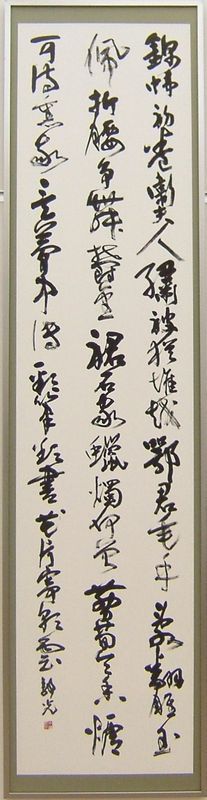 錦幃初卷衛夫人繡被猶堆越鄂君垂手亂翻雕玉
佩折腰爭舞鬱金裙石家蠟燭何曾剪荀令香爐
可待熏我是夢中傳彩筆欲書花片寄朝雲